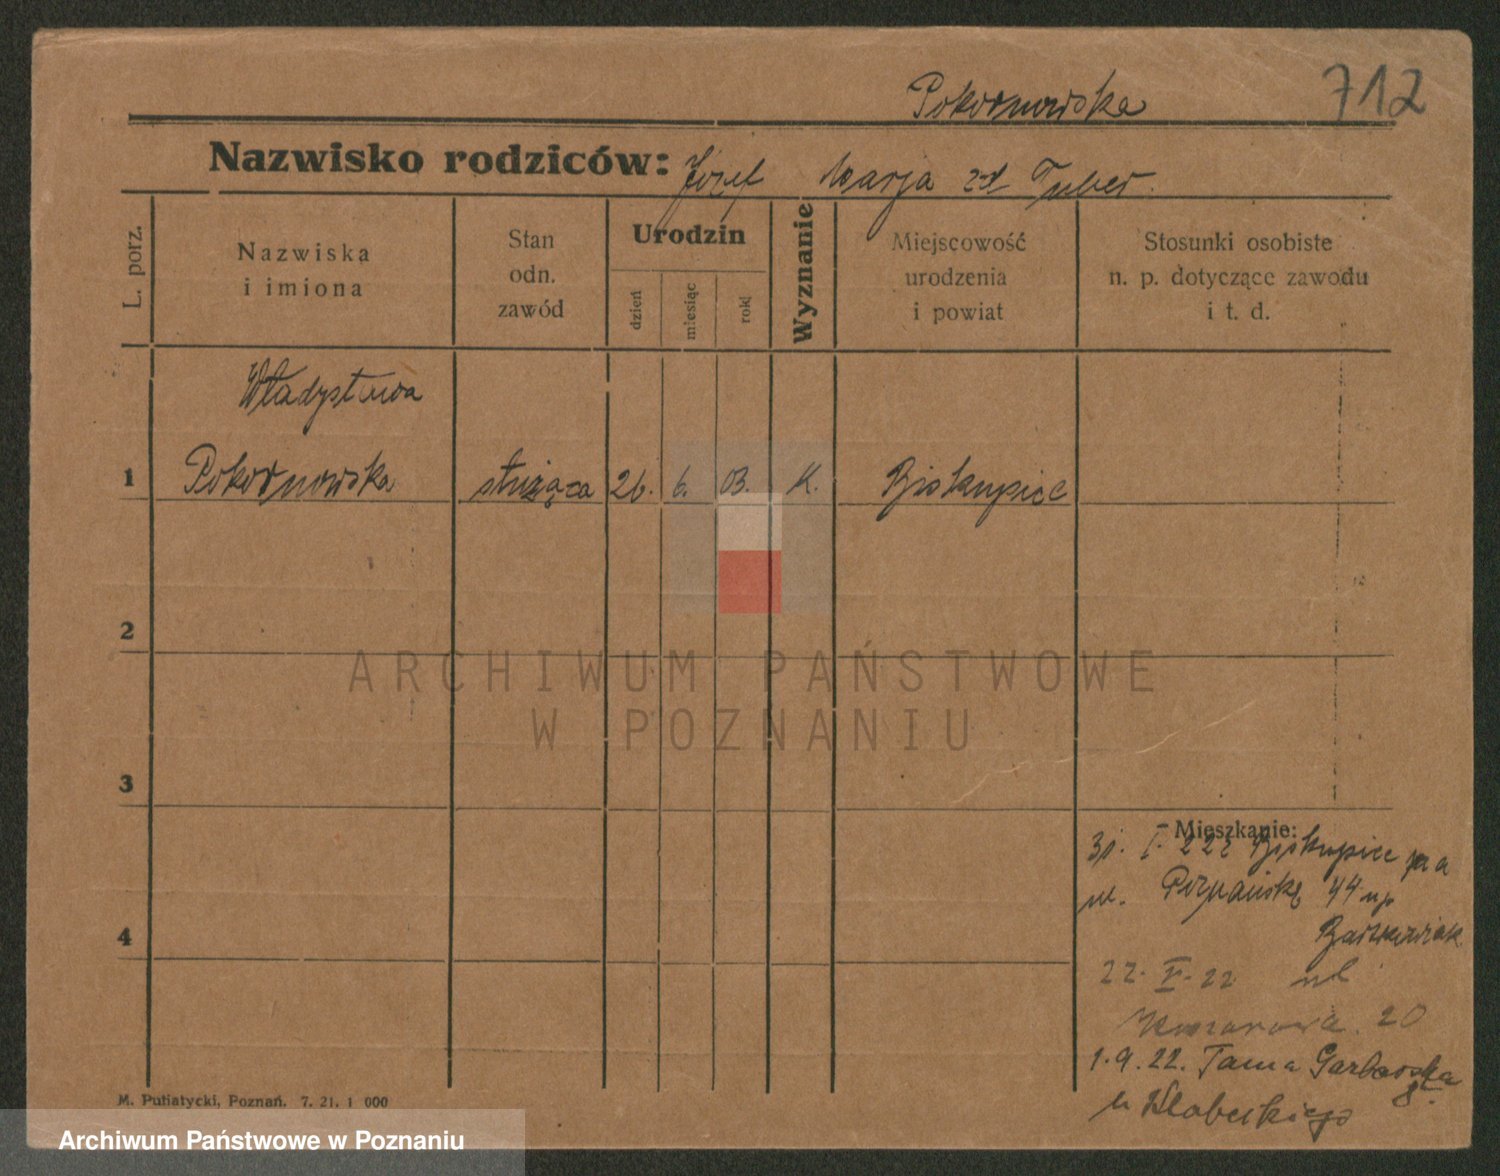 Pokornowska 712
Nazwisko rodziców: Józef Marja zd Tuber.
L. porz.
Nazwiska
i imiona
Stan
odn.
zawód
Urodzin
dzień
miesiąc
rok
Wyznanie
Miejscowość
urodzenia
i powiat
Stosunki osobiste
n. p. dotyczące zawodu
i t. d.
Władysława
1 Pokornowska służąca 26. 6. 03. K. Biskupice
2
ARCHIWUM PAŃSTWOWE
W POZNANIU
3
Mieszkanie:
31. I. 222 Biskupice na
ul. Poznańską 44
4
22. V. 22 ul
20
1.9.22. Tama Garbarska
8.
u
M. Putiatycki, Poznań. 7. 21. 1 000
Archiwum Państwowe w Poznaniu